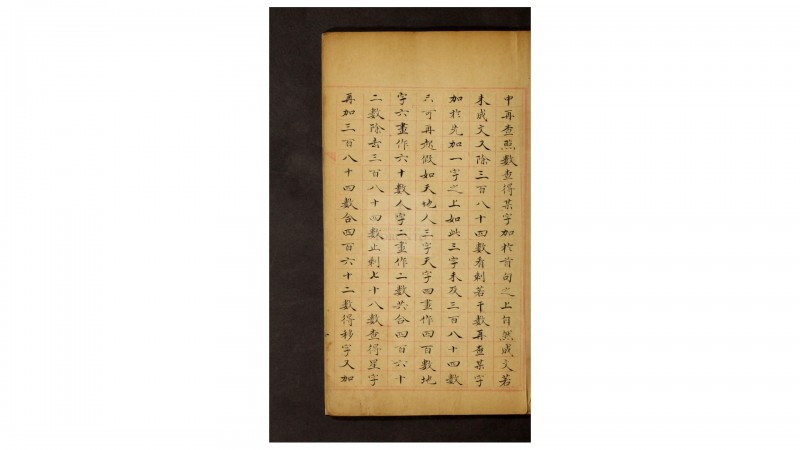 中再查照數查得某字加於首句之上自然成文若
未成文又除三百八十四數看剩若干數再查某字
加於先加一字之上如此三字未及三百八十四數
只可再起假如天地人三字天字四畫作四百數地
字六畫作六十數人字二畫作二數共合四百六十
二數除去三百八十四數止剩七十八數查得星字
再加三百八十四數合四百六十二數得移字又加